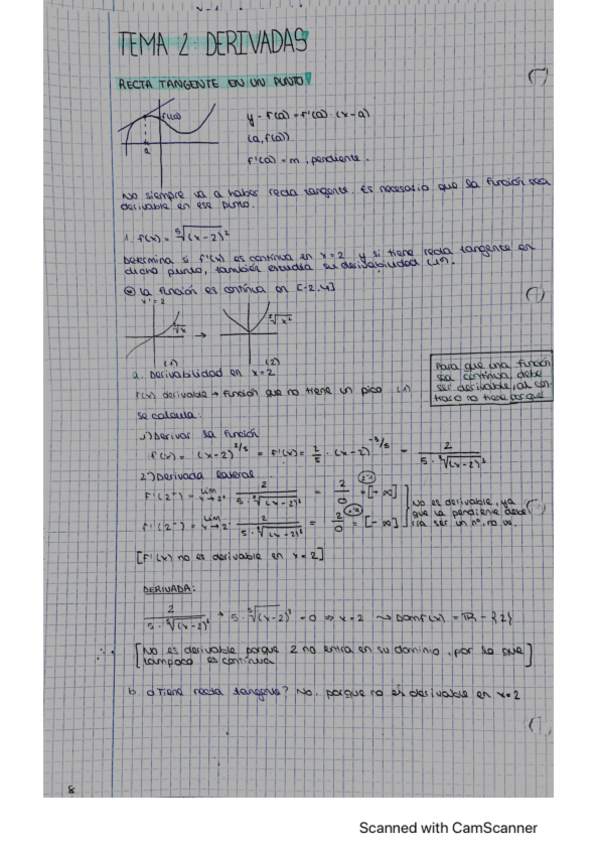 TEMA 2: DERIVADAS
RECTA TANGENTE EN UN PUNTO
f(a)
a
y - f(a) = f'(a) · (x-a)
(a, f(a))
f'(a) = m, pendiente.
No siempre va a haber recta tangente. Es necesario que la función sea
derivable en ese punto.
1. f(x) = ⁵√(x-2)²
Determina si f'(x) es contínua en x=2 y si tiene recta tangente en
dicho punto, también estudia su derivabilidad
La función es contínua en [-2,4]
(1)
(2)
a. Derivabilidad en x=2
f(x) derivable → función que no tiene un pico
Se calcula:
Para que una función
sea contínua, debe
ser derivable, al con-
trario no tiene porque
1) Derivar la función
f(x) = (x-2)^2/5 = f'(x) = 2/5 · (x-2)^-3/5 = 2 / 5 · ⁵√(x-2)³
2) Derivada lateral
No es derivable, ya
que la pendiente debe
ría ser un nº, no ∞.
[f'(x) no es derivable en x=2]
DERIVADA:
= 0 ⇒ x=2 → Domf(x) = ℝ - {2}
∴ [No es derivable porque 2 no entra en su dominio, por lo que
tampoco es contínua]
b. ¿Tiene recta tangente? No, porque no es derivable en x=2
8
Scanned with CamScanner